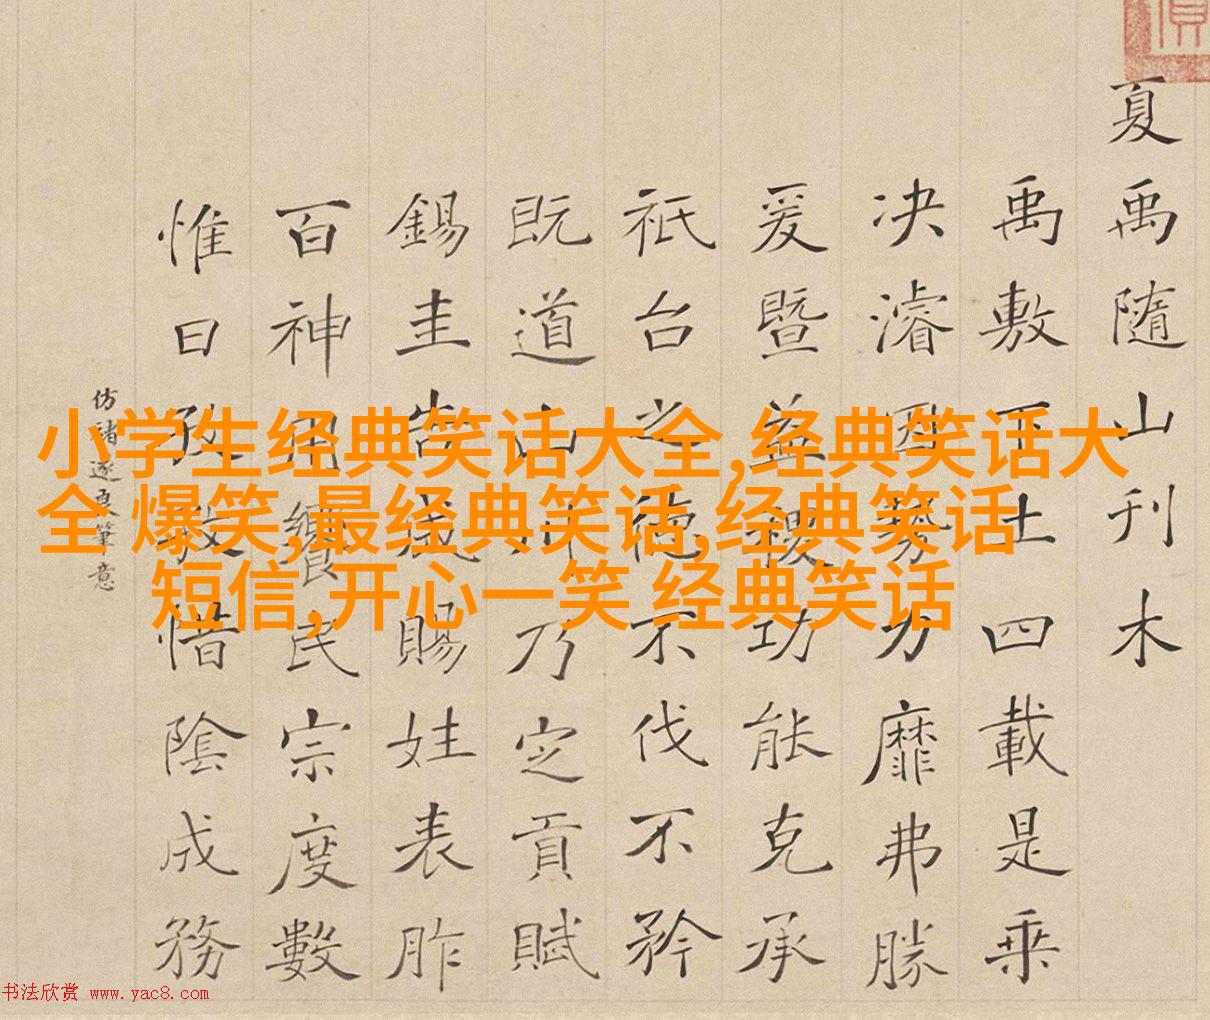 夏禹隨山刊木
禹敷下土四載是乘
决濬因勢力靡弗勝
爰暨益稷功能克承
祇台之德不伐不矜
既道山川乃定貢賦
錫圭告成賜姓表胙
百神用饗民宗度數
惟日孜孜惜陰成務
仿褚遂良筆意
小学生经典笑话大全,经典笑话大
全 爆笑,最经典笑话,经典笑话
短信,开心一笑 经典笑话
书法欣赏 www.yac8.com